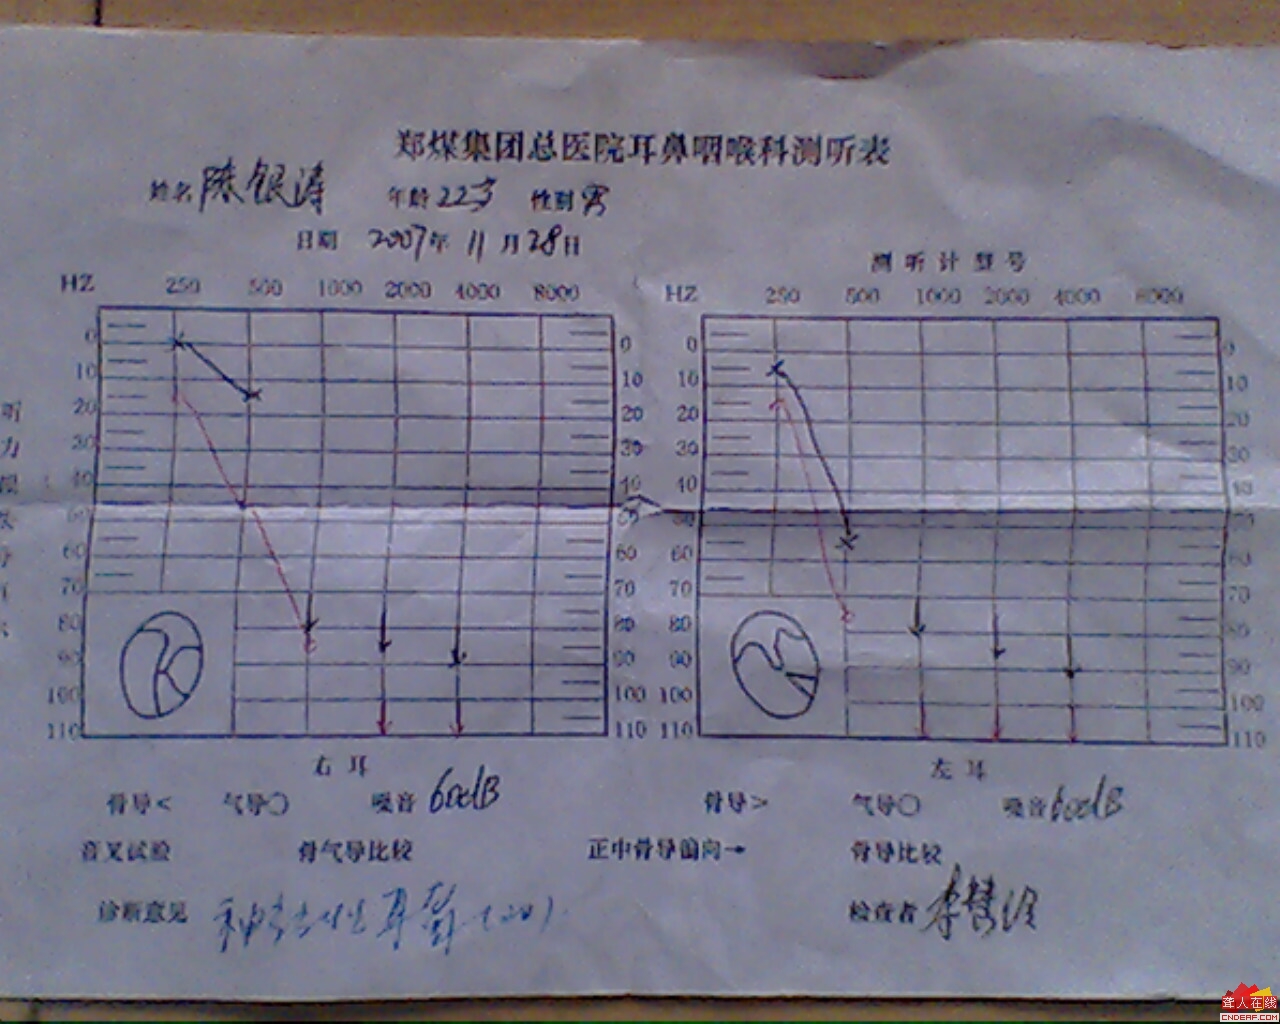 郑煤集团总医院耳鼻咽喉科测听表
姓名 陈银涛 年龄 22岁 性别 男
日期 2007年 11月28日
测听计型号
HZ 250 500 1000 2000 4000 8000
HZ 250 500 1000 2000 4000 8000
0 0 0 0
10 10 10 10
20 20 20 20
30 30 30 30
40 40 40 40
50 50 50
60 60 60 60
70 70 70 70
80 80 80 80
90 90 90 90
100 100 100 100
110 110 110 110
听
力
右耳 左耳
骨导< 气导○ 噪音 60dB 骨导> 气导○ 噪音 60dB
音叉试验 骨气导比较 正中骨导偏向→ 骨导比较
诊断意见 神经性耳聋 检查者 李
聋人在线
CNDEAF.COM